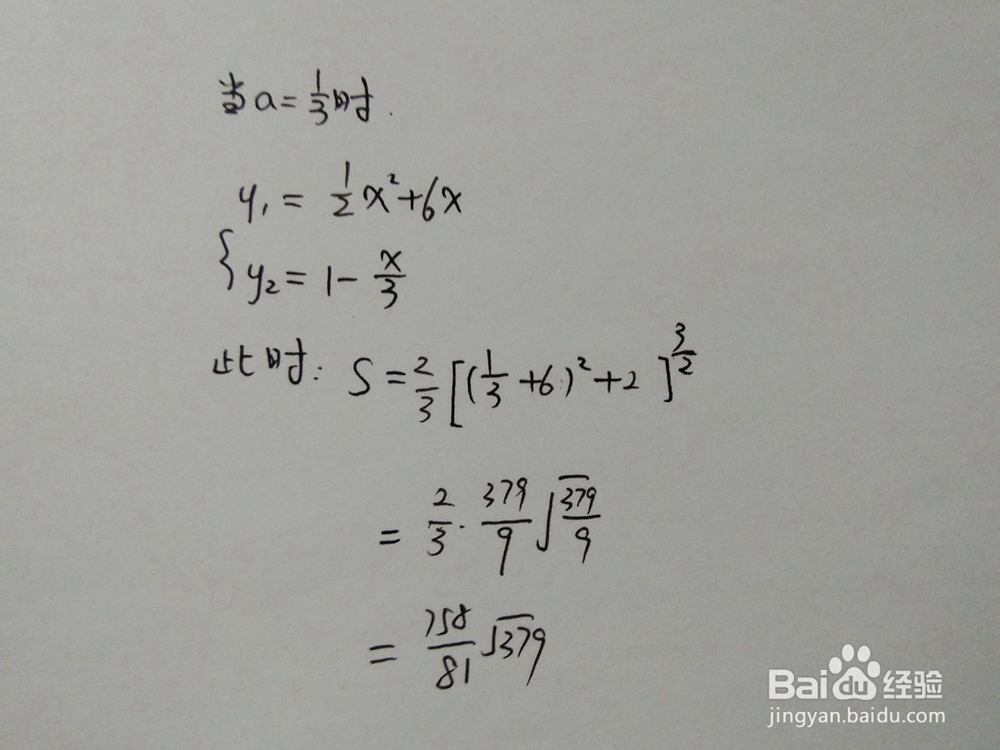 当a=1/3时.
y₁ = 1/2 x²+6x
{ y₂ = 1 - x/3
此时: S = 2/3 [(1/3 +6)²+2]^(3/2)
= 2/3 · 379/9 √(379/9)
= 758/81 √379
Baidu 经验
jingyan.baidu.com